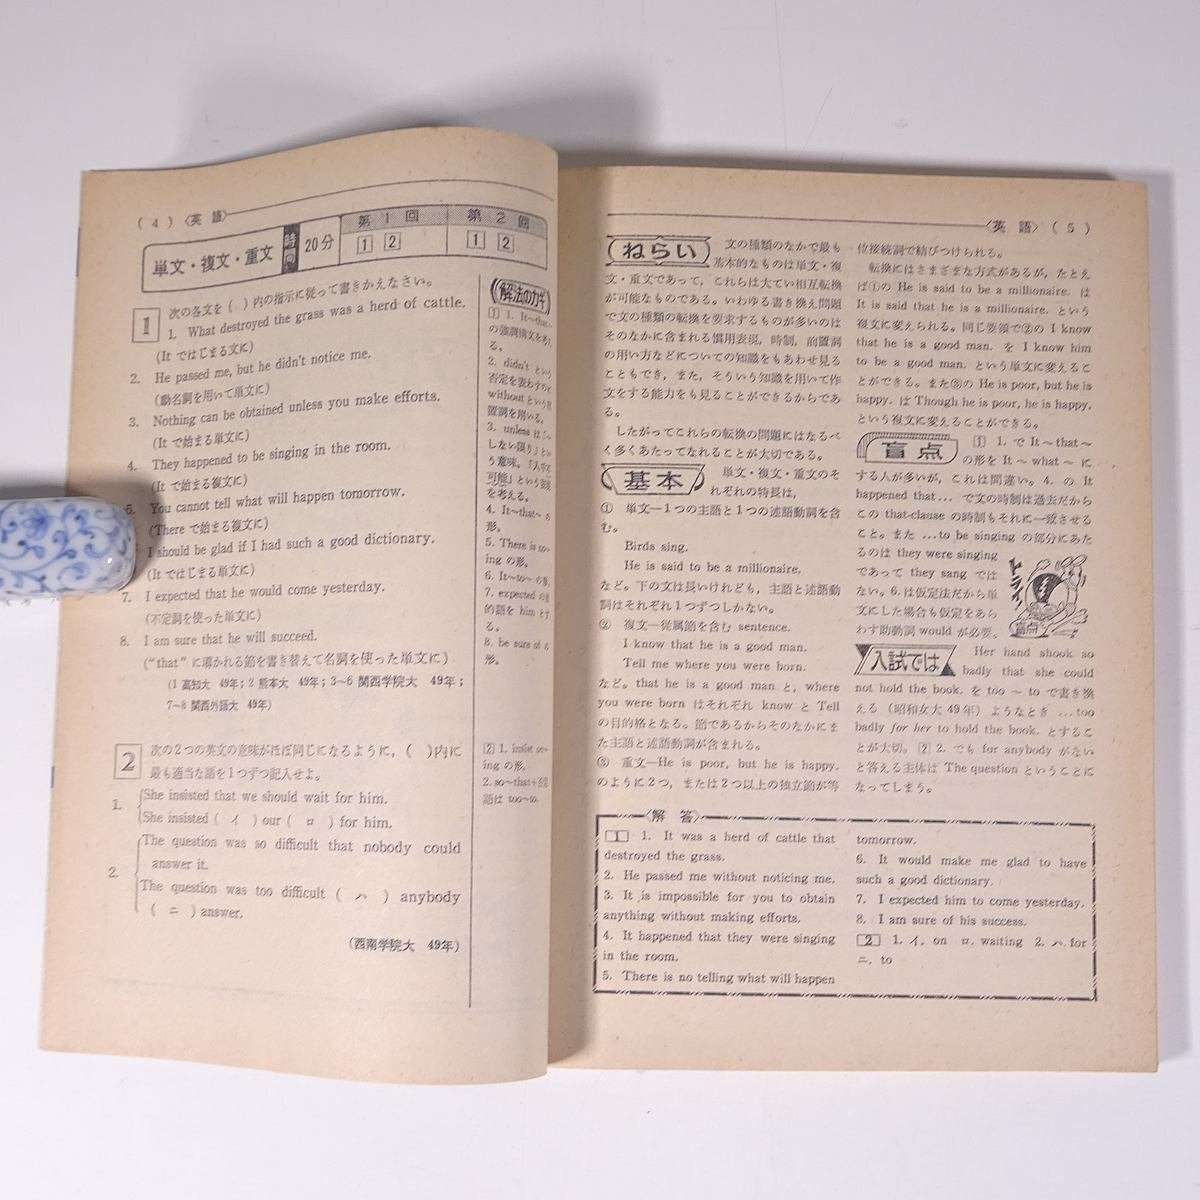 ( 4 ) 〈英 語〉
単文・複文・重文
時間
20分
第 1 回
第 2 回
1 2
1 2
1
次の各文を ( ) 内の指示に従って書きかえなさい。
1. What destroyed the grass was a herd of cattle.
(It ではじまる文に)
2. He passed me, but he didn't notice me.
(動名詞を用いて単文に)
3. Nothing can be obtained unless you make efforts.
(It で始まる単文に)
4. They happened to be singing in the room.
(It で始まる複文に)
5. You cannot tell what will happen tomorrow.
(There で始まる複文に)
I should be glad if I had such a good dictionary.
(It ではじまる単文に)
7. I expected that he would come yesterday.
(不定詞を使った単文に)
8. I am sure that he will succeed.
("that" に導かれる節を書き替えて名詞を使った単文に)
(1 高知大 49年; 2 熊本大 49年; 3~6 関西学院大 49年;
7~8 関西外語大 49年)
2
次の2つの英文の意味がほぼ同じになるように, ( )内に
最も適当な語を1つずつ記入せよ。
1. She insisted that we should wait for him.
She insisted ( イ ) our ( ロ ) for him.
2. The question was so difficult that nobody could
answer it.
The question was too difficult ( ハ ) anybody
( ニ ) answer.
(西南学院大 49年)
解法のカギ
1 1. It~that~
の強調構文をあ
る。
2. didn't という
否定を表わす
without という
置詞を用いる。
3. unless は「~
しない限り」とい
う意味。
可能」という
を考える。
4. It~that~の
形。
5. There is no~
ing の形。
6. It~to~の形
7. expected の
的語を him とす
る。
8. be sure of の
形。
2 1. insist on~
ing の形。
2. so~that+否定
語は too~to.
〈英 語〉 ( 5 )
ねらい
文の種類のなかで最も
基本的なものは単文・複
文・重文であって, これらは大てい相互転換
が可能なものである。いわゆる書き換え問題
で文の種類の転換を要求するものが多いのは
そのなかに含まれる慣用表現, 時制, 前置詞
の用い方などについての知識をもあわせ見る
こともでき, また, そういう知識を用いて作
文をする能力をも見ることができるからであ
る。
したがってこれらの転換の問題にはなるべ
く多くあたってなれることが大切である。
基本
単文・複文・重文のそ
れぞれの特長は,
① 単文―1つの主語と1つの述語動詞を含
む。
Birds sing.
He is said to be a millionaire.
など。下の文は長いけれども, 主語と述語動
詞はそれぞれ1つずつしかない。
② 複文―従属節を含む sentence.
I know that he is a good man.
Tell me where you were born.
など。that he is a good man と, where
you were born はそれぞれ know と Tell
の目的格となる。節であるからそのなかにま
た主語と述語動詞が含まれる。
③ 重文―He is poor, but he is happy.
のように2つ, または2つ以上の独立節が等
位接続詞で結びつけられる。
転換にはさまざまな方式があるが, たとえ
ば①の He is said to be a millionaire. は
It is said that he is a millionaire. という
複文に変えられる。同じ要領で②の I know
that he is a good man. を I know him
to be a good man. という単文に変えるこ
とができる。また③の He is poor, but he is
happy. は Though he is poor, he is happy.
という複文に変えることができる。
盲点
1 1. で It~that~
の形を It~what~ に
する人が多いが, これは間違い。4. の It
happened that... で文の時制は過去だから
この that-clause の時制もそれに一致させる
こと。また ...to be singing の部分にあた
るのは they were singing
であって they sang では
ない。6. は仮定法だから単
文にした場合も仮定をあら
わす助動詞 would が必要。
トライ!
盲点
入試では
Her hand shook so
badly that she could
not hold the book. を too ~ to で書き換
える (昭和女大 49年) ようなとき ...too
badly for her to hold the book. とするこ
とが大切。2 2. でも for anybody がない
と答える主体は The question ということに
なってしまう。
〈解 答〉
1 1. It was a herd of cattle that
destroyed the grass.
2. He passed me without noticing me.
3. It is impossible for you to obtain
anything without making efforts.
4. It happened that they were singing
in the room.
5. There is no telling what will happen
tomorrow.
6. It would make me glad to have
such a good dictionary.
7. I expected him to come yesterday.
8. I am sure of his success.
2 1. イ. on ロ. waiting 2. ハ. for
ニ. to